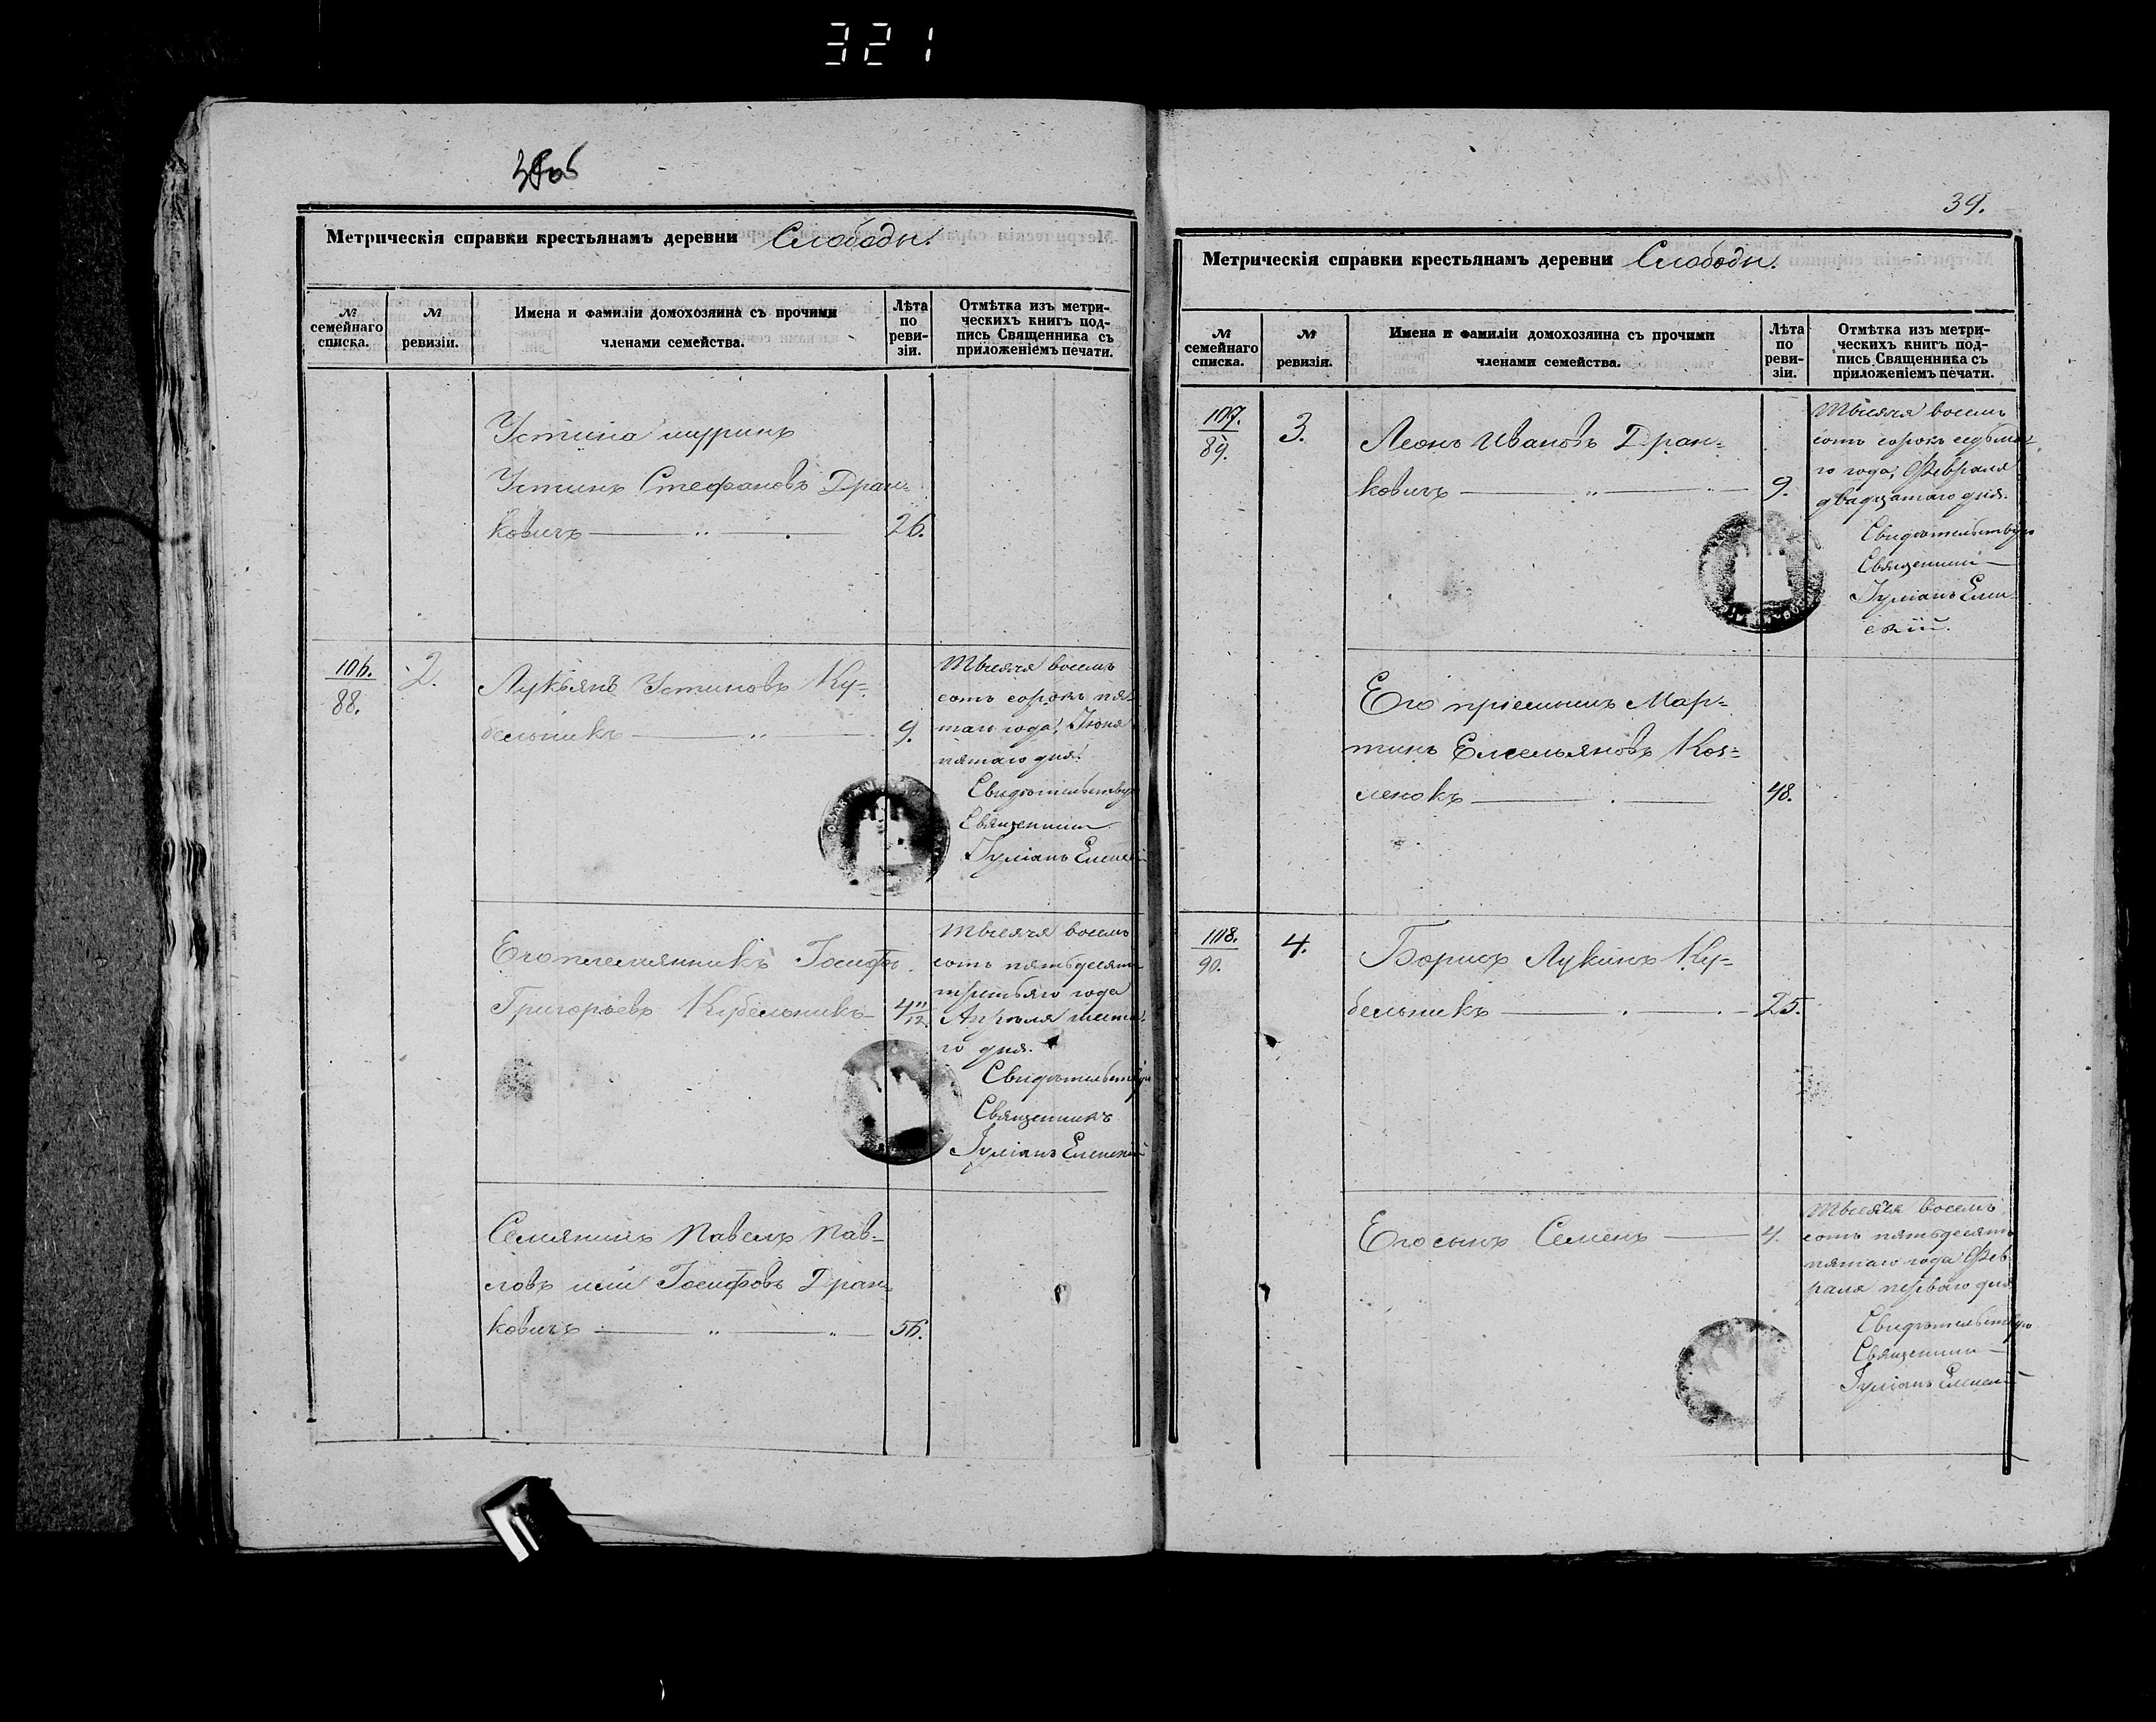 321
Метрическія справки крестьянамъ деревни Слободы.
№
семейнаго
списка.
№
ревизіи.
Имена и фамиліи домохозяина съ прочими
членами семейства.
Лѣта
по
реви-
зіи.
Отмѣтка изъ метри-
ческихъ книгъ под-
пись Священника съ
приложеніемъ печати.
Устина шуринъ
Устинъ Стефановъ Дран-
ковичъ 26.
106.
88.
2.
Лукьянъ Устиновъ Ку-
бельникъ 9.
Тысяча восемь
сотъ сорокъ пя-
таго года, Іюня
пятаго дня.
Свидѣтельствую
Священник
Іуліанъ Еленскій
Его племянникъ Іосифъ
Григорьевъ Кубельникъ 4 11/12.
Тысяча восемь
сотъ пятьдесятъ
третьяго года
Апрѣля шеста-
го дня.
Свидѣтельствую
Священникъ
Іуліанъ Еленскій
Семянинъ Павелъ Пав-
ловъ или Іосифовъ Дран-
ковичъ 56.
39.
Метрическія справки крестьянамъ деревни Слободы.
№
семейнаго
списка.
№
ревизіи.
Имена и фамиліи домохозяина съ прочими
членами семейства.
Лѣта
по
реви-
зіи.
Отмѣтка изъ метри-
ческихъ книгъ под-
пись Священника съ
приложеніемъ печати.
107.
89.
3.
Леонъ Ивановъ Дран-
ковичъ 9.
Тысяча восемь
сотъ сорокъ седьма-
го года, Февраля
двадцатаго дня.
Свидѣтельствую
Священник
Іуліанъ Елен-
скій.
Его пріемышъ Мар-
тинъ Емельяновъ Коз-
ленокъ 48.
108.
90.
4.
Борисъ Лукинъ Ку-
бельникъ 25.
Его сынъ Семенъ 4.
Тысяча восемь
сотъ пятьдесятъ
пятаго года Фев
раля перваго дня
Свидѣтельствую
Священник
Іуліанъ Еленскій